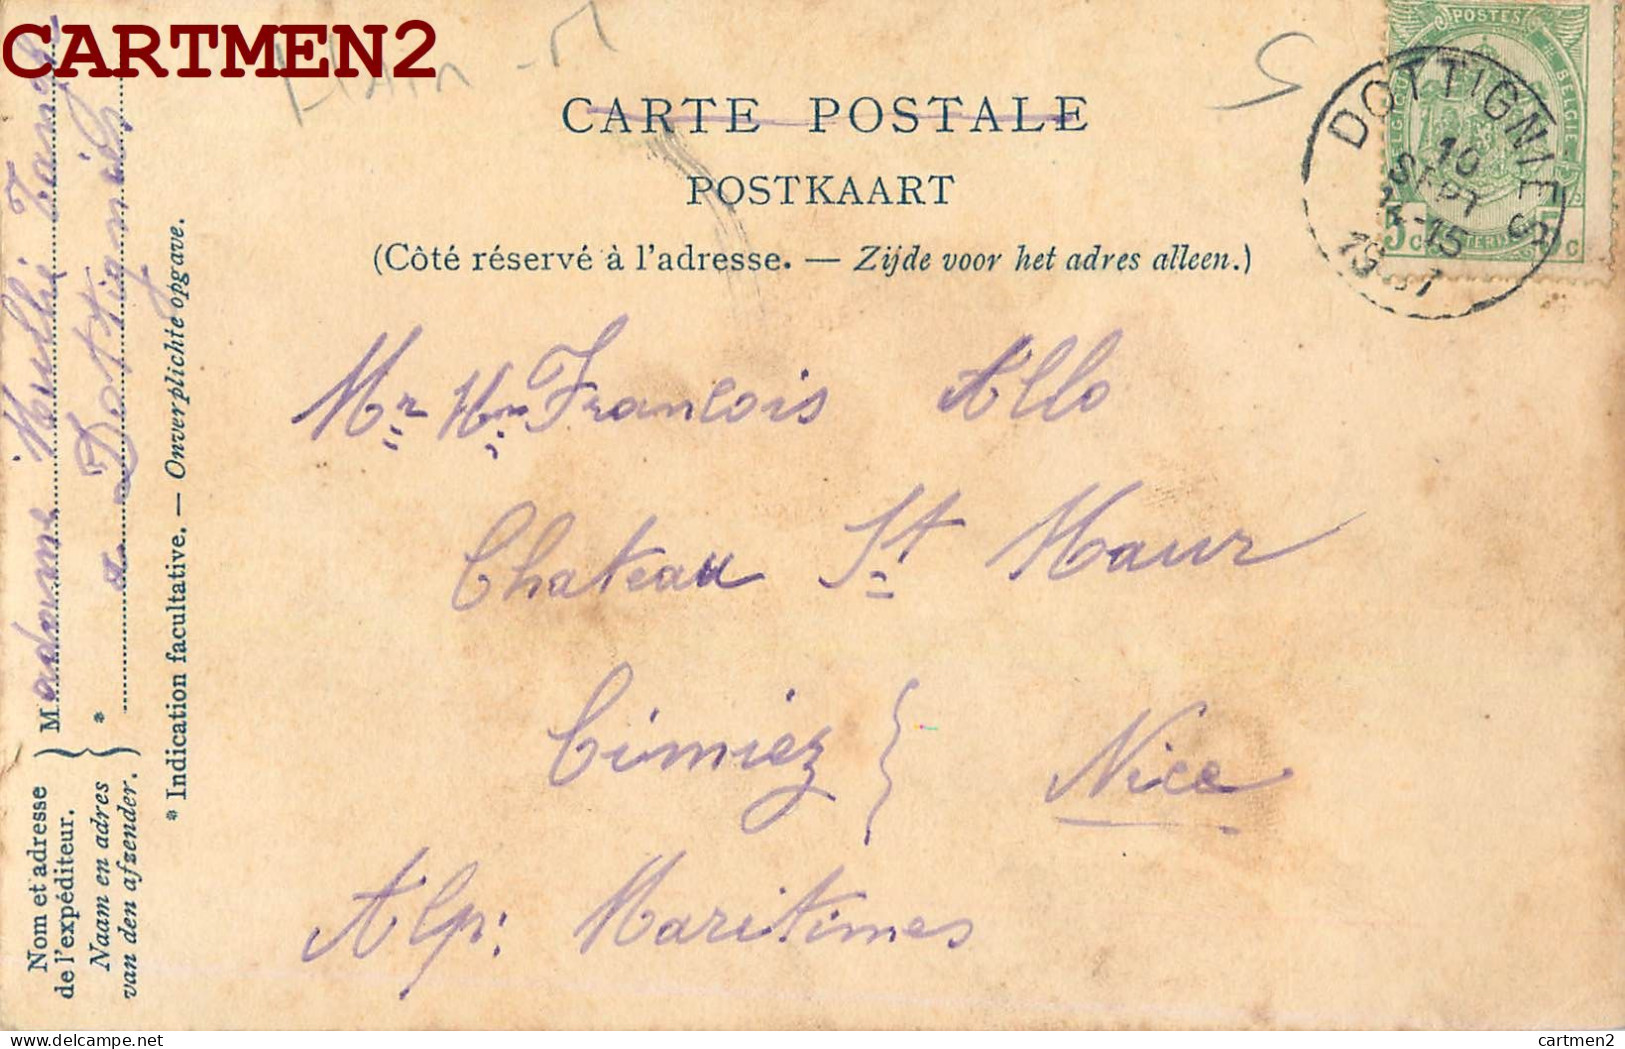 CARTMEN2
CARTE POSTALE
POSTKAART
(Côté réservé à l'adresse. — Zijde voor het adres alleen.)
POSTES
DOTTIGNIES
10
SEPT
-15
Mr François Allo
Chateau St Maur
Cimiez } Nice
Alp: Maritimes
Nom et adresse
de l'expéditeur.
Naam en adres
van den afzender.
Madame
* a Dottignies
* Indication facultative. — Onverplichte opgave.
delcampe.net
cartmen2